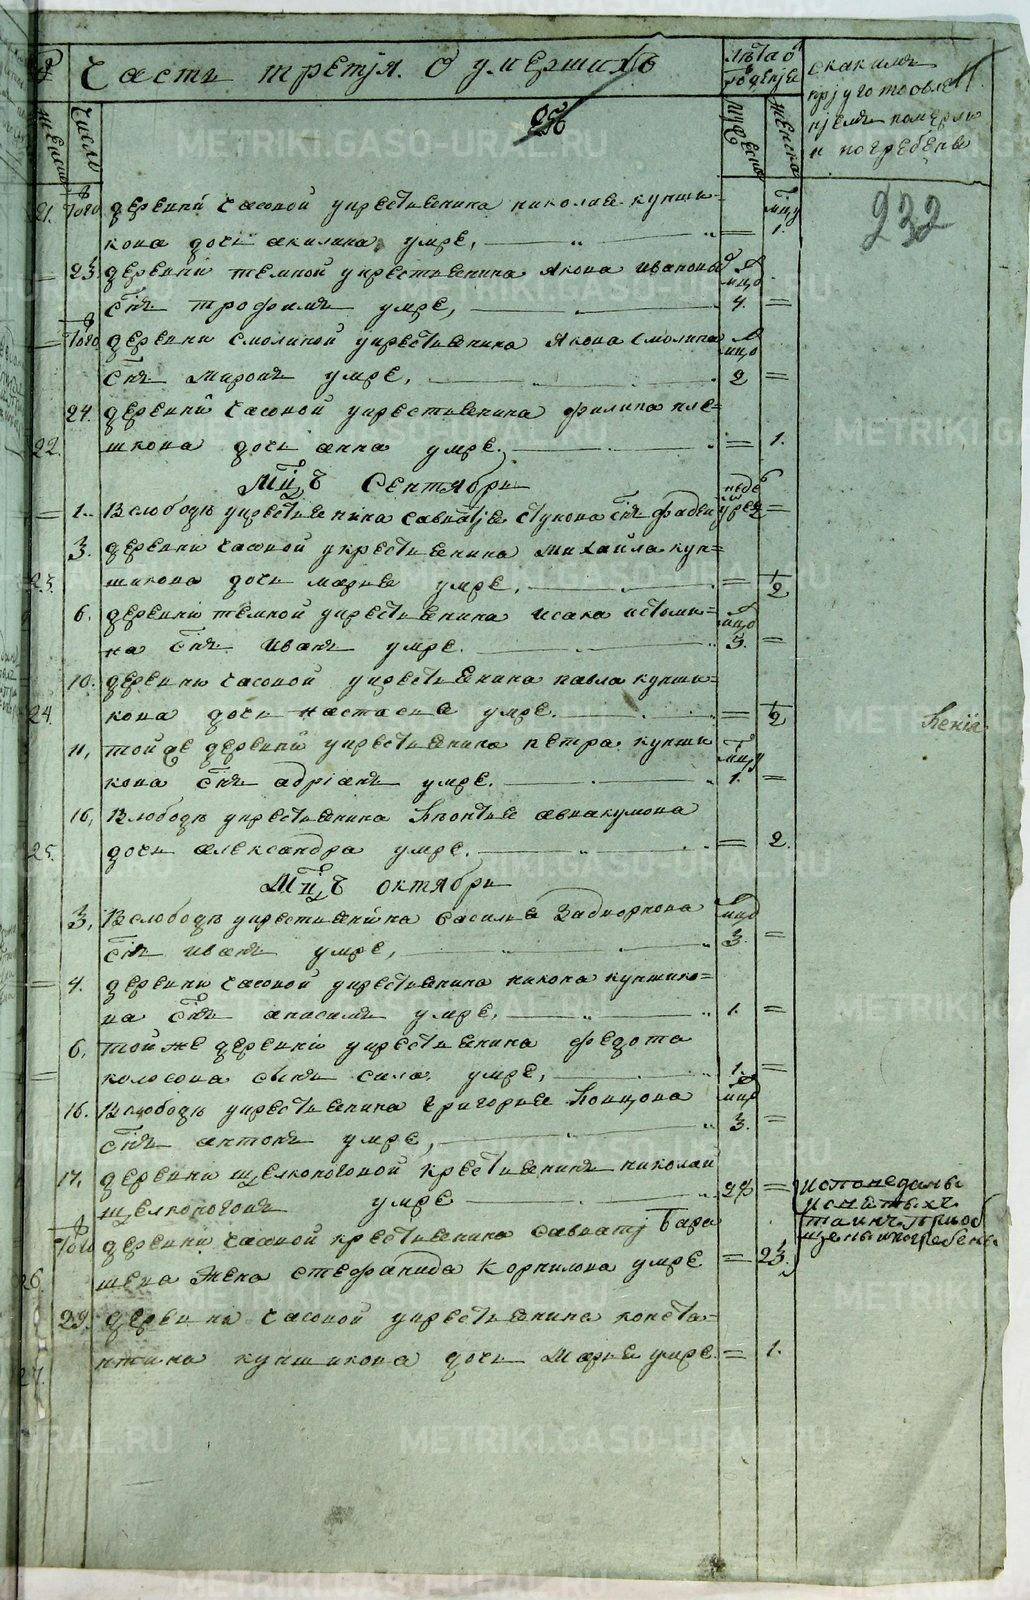 Часть третїя. О умершихъ
лѣта от рожденїе
мужеска
женска
скакимъ
прїуготовле
нїемъ померли
и погребены
число
женска
232
21. того деревни Часовой укрестьянина николае купши=
мцу 1.
кова дочь акилина умре,
23. деревни темной укрестьянина Якова Иванова
мцо
сн҃ъ трофимъ умре, 4. =
того деревни Смолиной укрестьянина Якова Смолина
мцо
сн҃ъ миронъ умре, 2 =
24. деревни Часовой укрестьянина филипа пле=
22. шкова дочь анна умре. = 1.
Мц҃ъ Сентябрь
1. Вслободѣ укрестьянина Савватїе Стукова сн҃ъ фадей умре 2 =
3. деревни Часовой укрестьянина Михайла куп=
23. шикова дочь марье умре. = 1/2
6. деревни темной укрестьянина Исака истоми=
мцо
на сн҃ъ Иванъ умре. 3. =
10. деревни Часовой укрестьянина павла купши=
24. кова дочь настасье умре. = 1/2
11, тойже деревни укрестьянина петра купши
мцу
кова сн҃ъ адрїанъ умре. 1. =
16, Вслободѣ укрестьянина Леонтье аввакумова
25. дочь александра умре. = 2.
Мц҃ъ октябрь
3, Вслободѣ укрестьянина василье Задворнова
мцо
сн҃ъ иванъ умре, 3. =
4. деревни Часовой укрестьянина никона купшико=
ва сн҃ъ апасимъ умре, 1. =
6, тойже деревни укрестьянина федота
колосова сынъ сила умре, 1. =
16. Вслободѣ укрестьянина григорье
мцо
сн҃ъ антонъ умре, 3. =
17, деревни щелконоговой крестьянинъ николай
щелконоговъ умре =
исповеданы
исвятыхъ
таинъ приоб
щены ипогребены
того деревни Часовой крестьянина Савватїе Бара
26. шева Жена стефанида Корнилова умре = 23.
29. деревни Часовой укрестьянина конста=
27. нтина купшикова дочь Марье умре = 1.